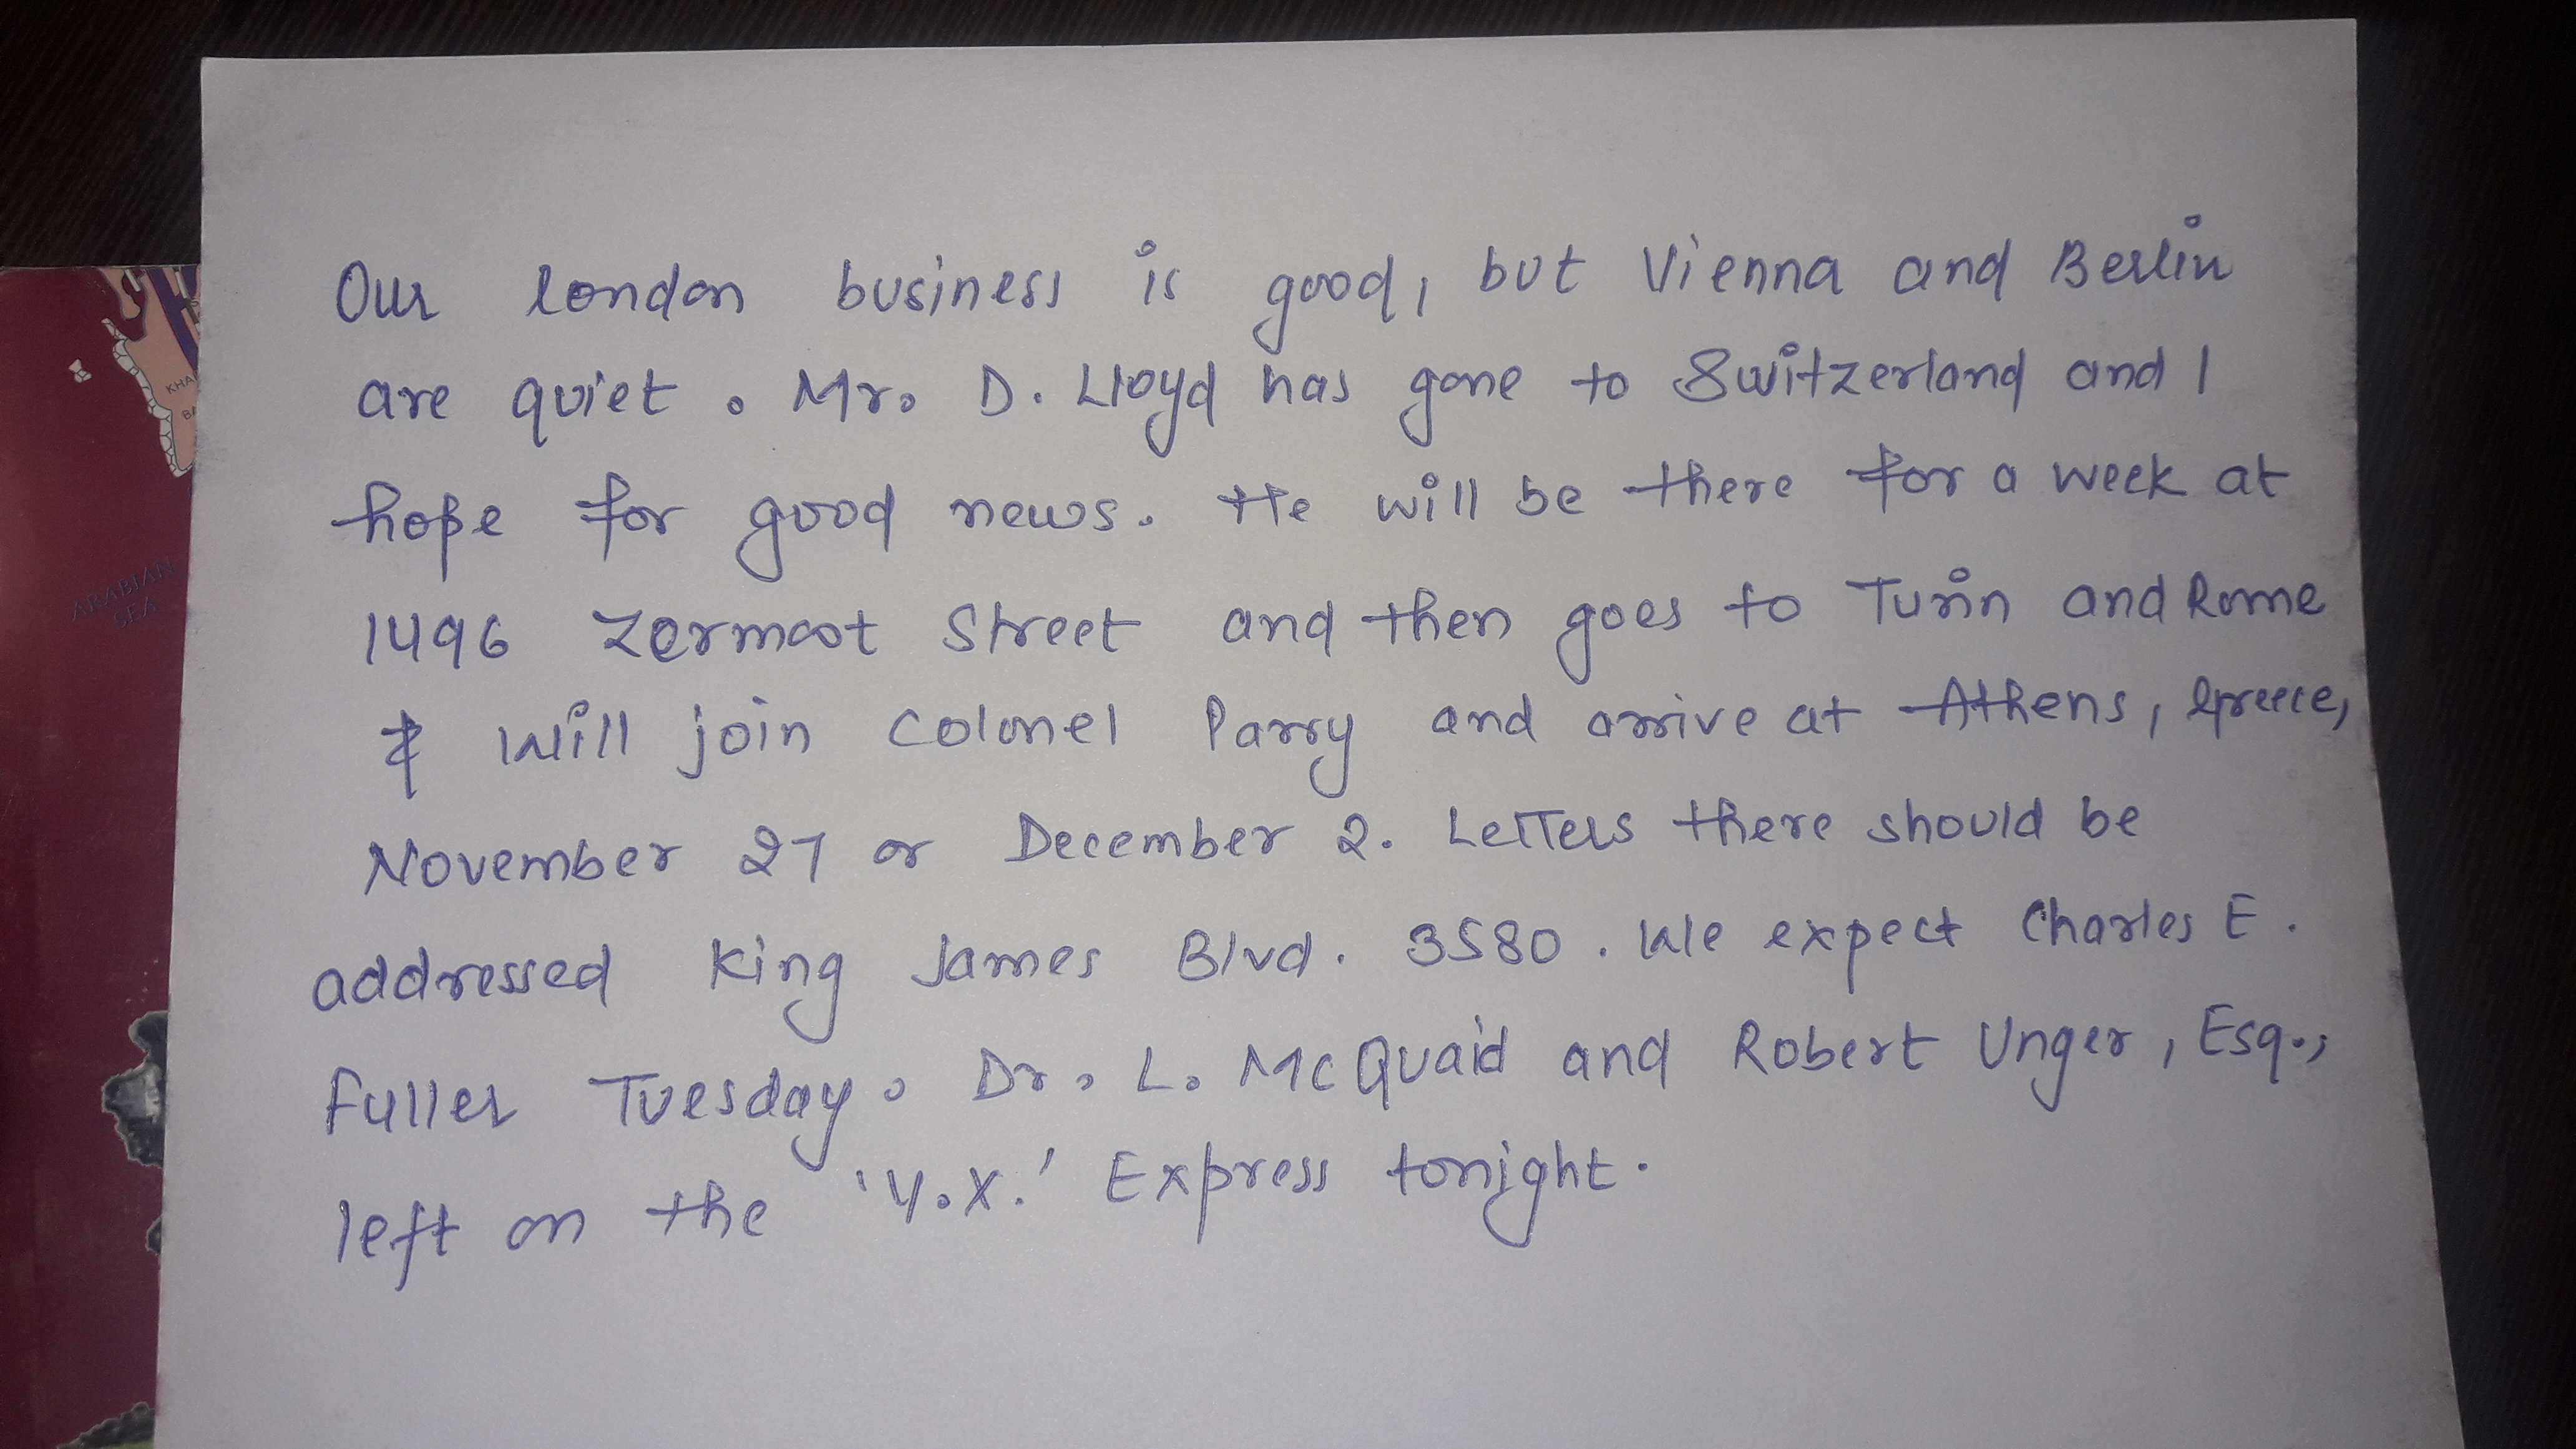 Our london business is good, but Vienna and Berlin
are quiet. Mr. D. Lloyd has gone to Switzerland and I
hope for good news. He will be there for a week at
1496 Zermoot Street and then goes to Turin and Rome
& will join Colonel Parry and arrive at Athens, Greece,
November 27 or December 2. Letters there should be
addressed King James Blvd. 3580. We expect Charles E.
Fuller Tuesday. Dr. L. McQuaid and Robert Unger, Esq.,
left on the 'Y.X.' Express tonight.
KHA
BA
ARABIAN
SEA